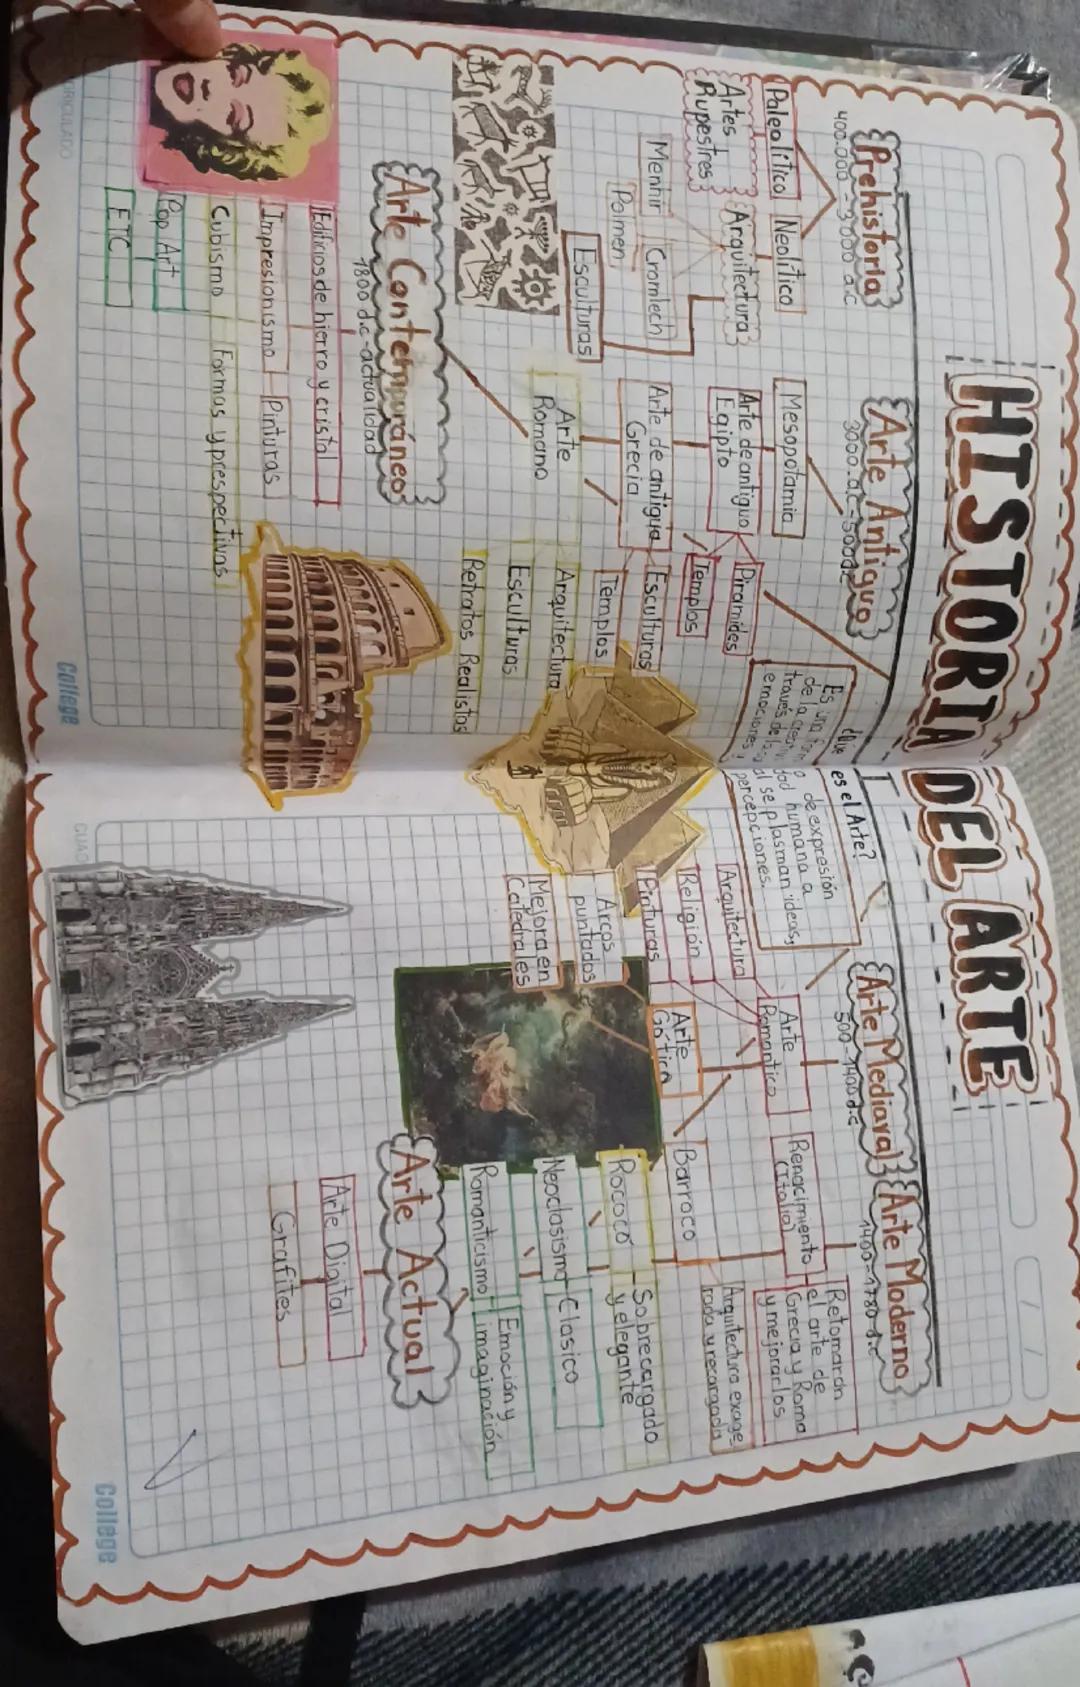 HISTORIA DEL ARTE
¿Que es el Arte?
Es una forma de expresión
de la creatividad humana a
través de la cual se plasman ideas,
emociones, percepciones.
Prehistoria
400.000-3000 a.c
Paleolítico
Neolítico
Artes
Rupestres
Arquitectura
Menhir
Cromlech
Dolmen
Esculturas
Arte Antiguo
3000.a.c-500d.c
Mesopotamia
Arte de antiguo
Egipto
Piramides
Templos
Arte de antigua
Grecia
Esculturas
Templos
Arte
Romano
Arquitectura
Esculturas
Retratos Realistas
Arte Contemporáneo
1800 d.c-actualidad
Edificios de hierro y cristal
Impresionismo
Pinturas
Cubismo
Formas y prespectivas
Pop Art
ETC
Arte Mediaval
500-1400 d.c
Arte
Romantico
Arquitectura
Religión
Pinturas
Arte
Gótico
Arcos
puntados
Mejora en
Catedrales
Arte Moderno
1400-1780 d.c
Renacimiento
(Italia)
Retomarón
el arte de
Grecia y Roma
y mejorarlos
Barroco
Arquitectura exage
rada y recargada
Rococó
Sobrecargado
y elegante
Neoclasismo
Clasico
Romanticismo
Emoción y
imaginación
Arte Actual
Arte Digital
Grafities
College
College